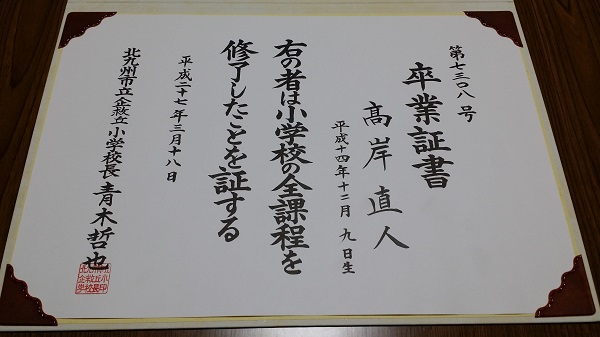 第七三〇八号
卒業証書
髙岸直人
平成十四年十二月九日生
右の者は小学校の全課程を
修了したことを証する
平成二十七年三月十八日
北九州市立企救丘小学校長 青木哲也